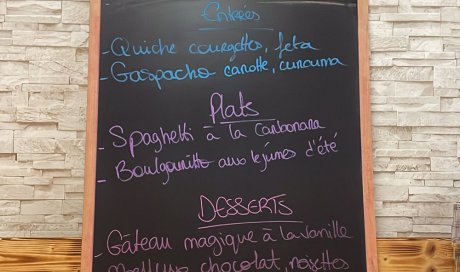 Entrées
- Quiche courgettes, feta
- Gaspacho carotte, curcuma
Plats
- Spaghetti à la Carbonara
- Boulgounotto aux légumes d'été
DESSERTS
- Gâteau magique à la vanille
Moelleux chocolat, noisettes